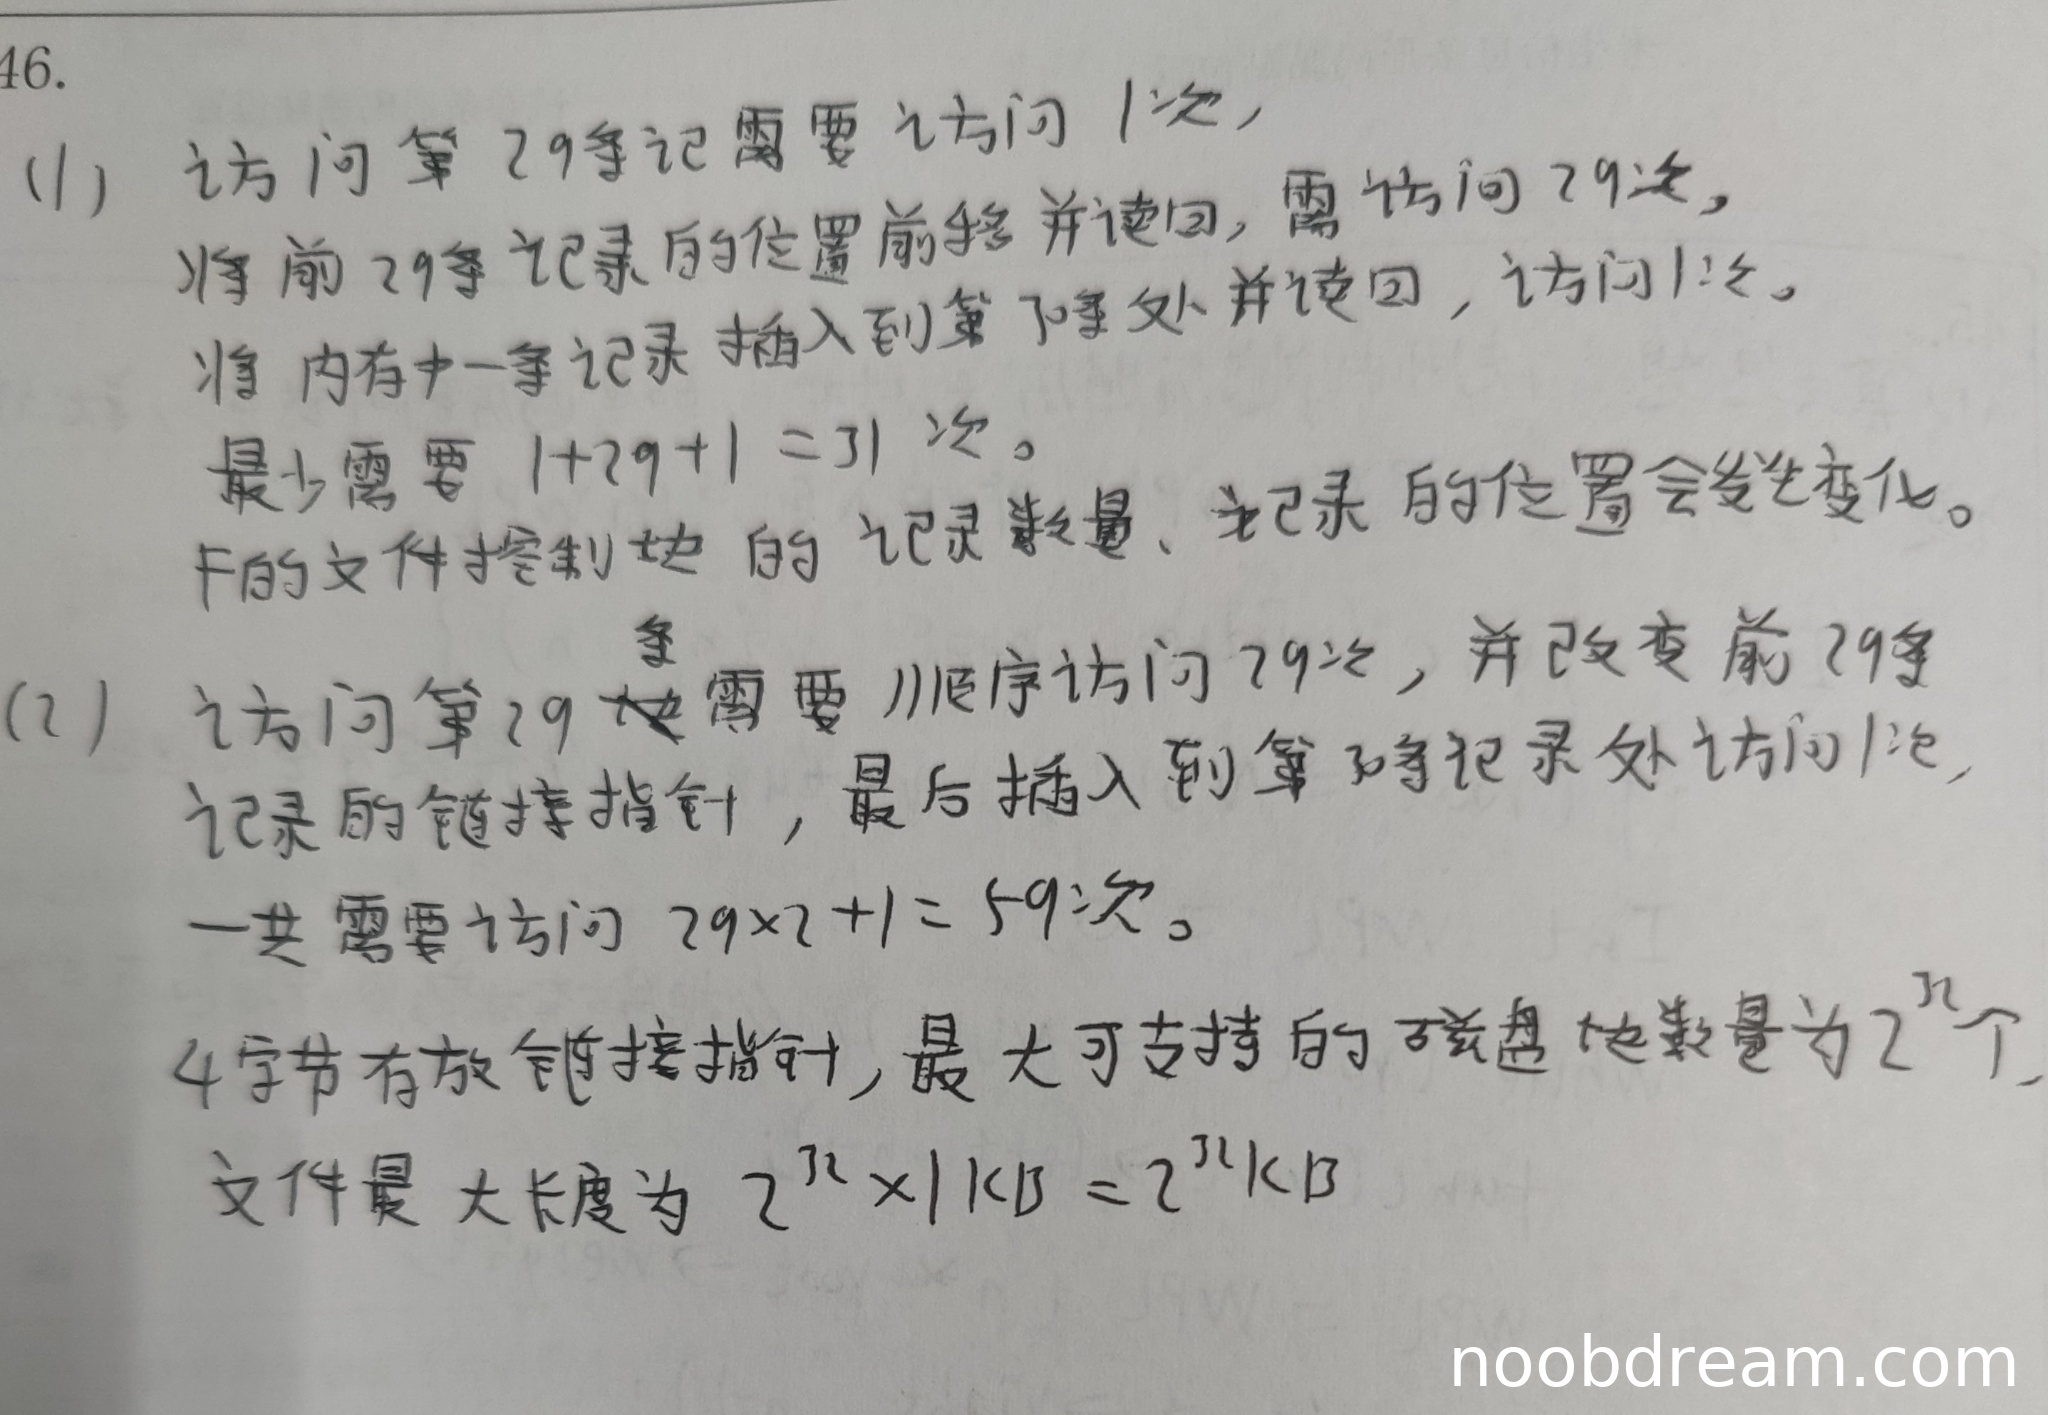 46.
(1) 访问第29条记需要访问1次,
将前29条记录的位置前移并读回,需访问29次。
将内存中一条记录插入到第30条处并读回,访问1次。
最少需要 1+29+1=31 次。
F的文件控制块的记录数量、记录的位置会发生变化。
(2) 访问第29条需要顺序访问29次,并改变前29条
记录的链接指针,最后插入到第30条记录处访问1次,
一共需要访问 29×2+1=59次。
4字节存放链接指针,最大可支持的磁盘块数量为2³²个,
文件最大长度为 2³²×1KB=2³²KB
noobdream.com